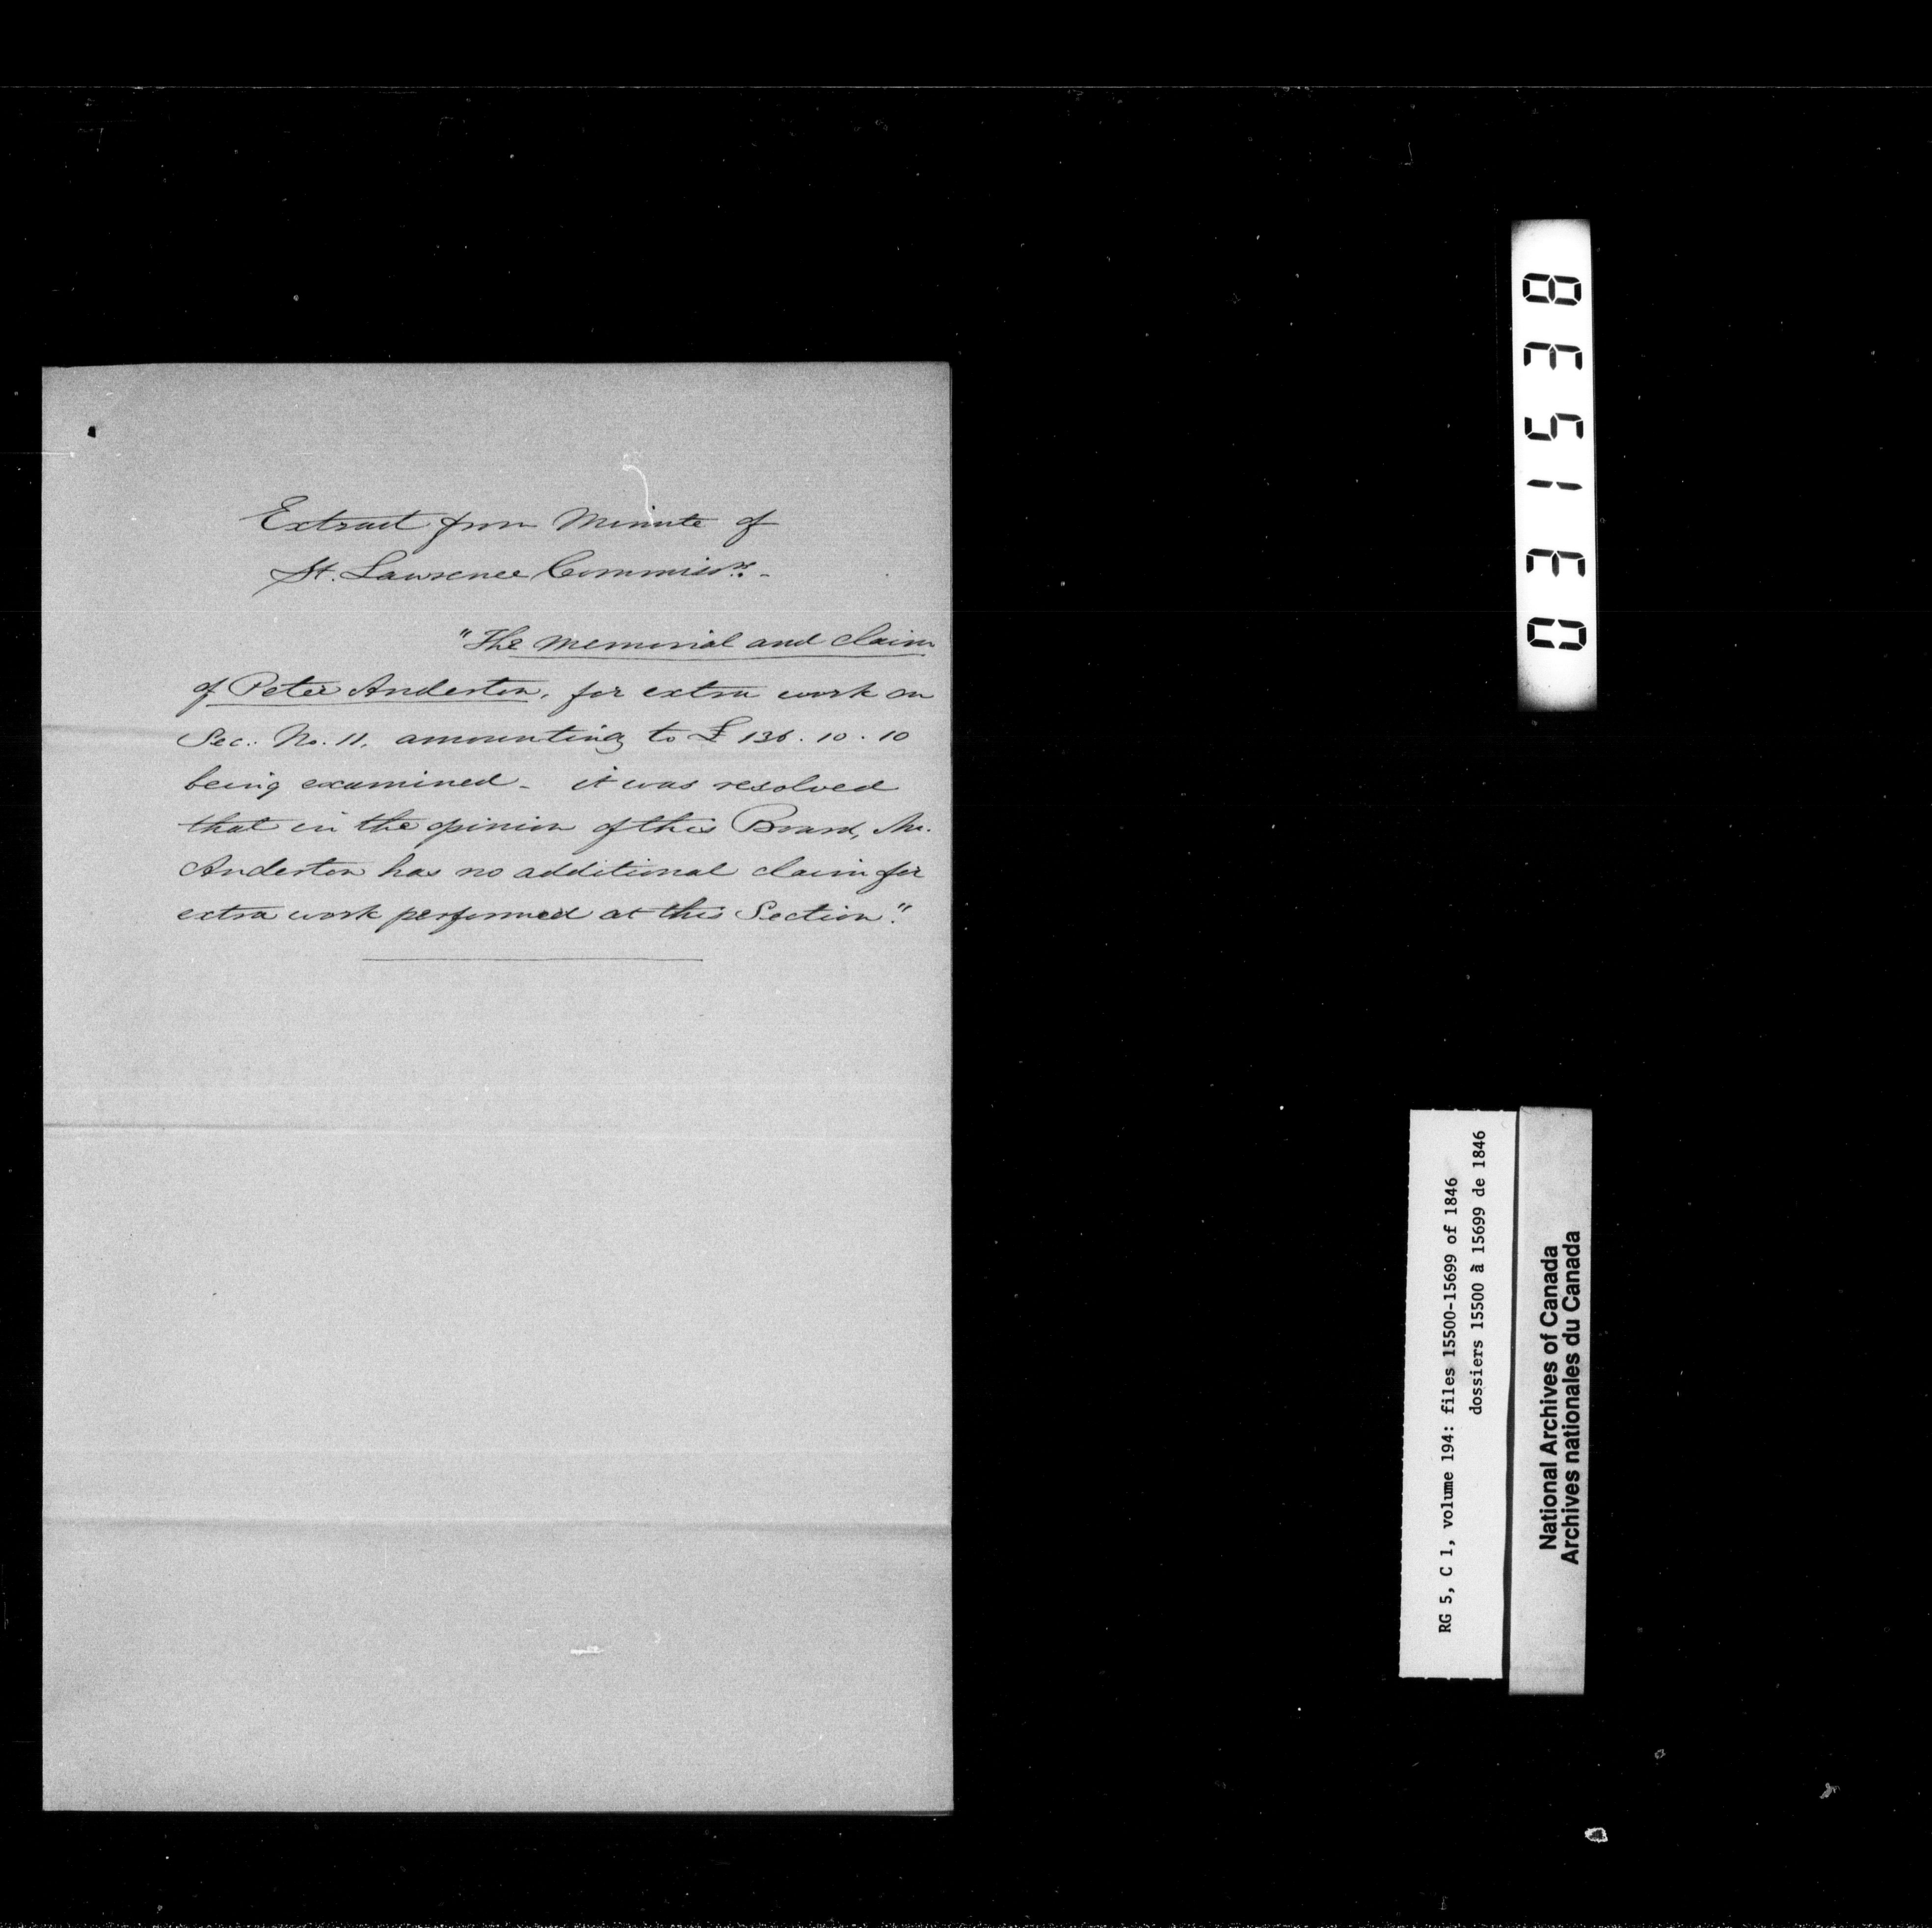 Extract from Minute of
St. Lawrence Commissrs.-
"The memorial and claim
of Peter Anderton, for extra work on
Sec: No. 11, amounting to £ 136.10.10
being examined - it was resolved
that in the opinion of this Board, Mr.
Anderton has no additional claim for
extra work performed at this Section".
031538
RG 5, C 1, volume 194: files 15500-15699 of 1846
dossiers 15500 à 15699 de 1846
National Archives of Canada
Archives nationales du Canada